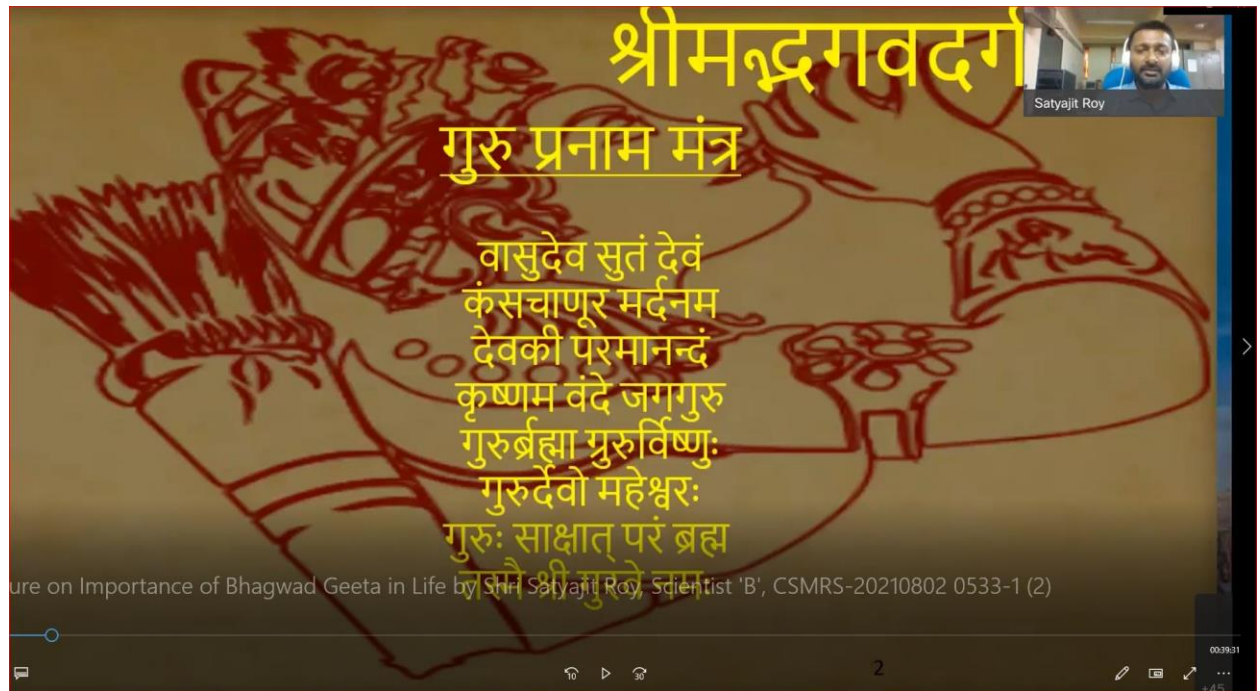 श्रीमद्भगवदगी
Satyajit Roy
गुरु प्रनाम मंत्र
वासुदेव सुतं देवं
कंसचाणूर मर्दनम
देवकी परमानन्दं
कृष्णम वंदे जगगुरु
गुरुर्ब्रह्मा ग्रुरुर्विष्णुः
गुरुर्देवो महेश्वरः
गुरुः साक्षात् परं ब्रह्म
तस्मै श्री गुरवे नमः
ure on Importance of Bhagwad Geeta in Life by Shri Satyajit Roy, Scientist 'B', CSMRS-20210802 0533-1 (2)
00:39:31
10
30
2
+45